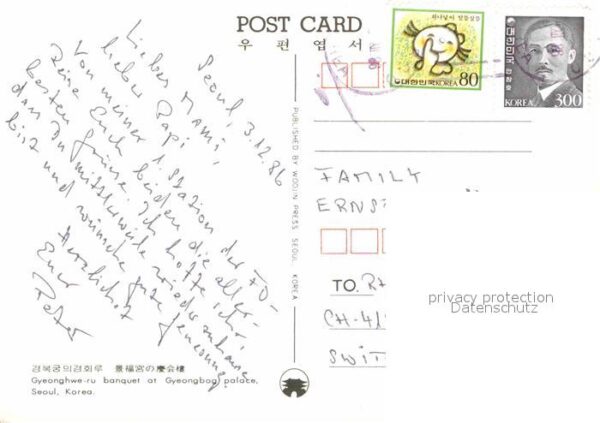 POST CARD
우편엽서
대한민국 KOREA 80
대한민국
KOREA 300
Seoul, 3.12.86
Liebes Mami,
lieber Papi
Von meiner 1. Station der FO-
Reise Euch beiden die aller-
besten Grüsse. Ich hoffe sehr
dass Du mittlerweile wieder zuhause
bist und wünsche gute Genesung.
Herzlichst
Euer
Peter
PUBLISHED BY WOOJIN PRESS SEOUL KOREA
FAMILY
ERNS
TO.
CH-41
SWIT
privacy protection
Datenschutz
경복궁의경회루 景福宮の慶会樓
Gyeonghwe-ru banquet at Gyeongbog palace,
Seoul, Korea.